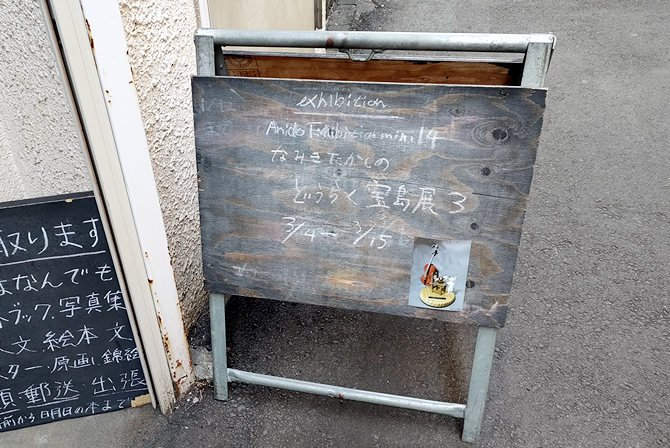 exhibition
Anido Exhibition mini 14
なみきたかしの
どうらく宝島展 3
3/4 — 3/15
取ります
なんでも
ラック.写真集
文 絵本 文
スター.原画.錦絵
郵送.出張
前から明日の本まで